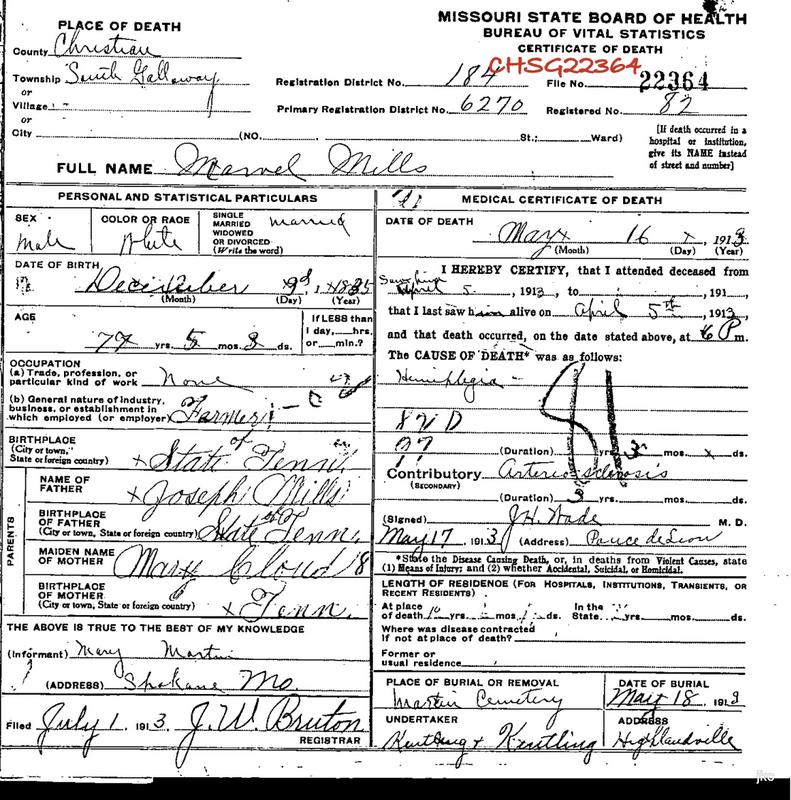 PLACE OF DEATH
County Christian
Township South Galloway
or
Village
or
City (NO. St.; Ward)
MISSOURI STATE BOARD OF HEALTH
BUREAU OF VITAL STATISTICS
CERTIFICATE OF DEATH
CHSG22364
Registration District No. 184 File No. 22364
Primary Registration District No. 6270 Registered No. 82
[If death occurred in a
hospital or institution,
give its NAME instead
of street and number]
FULL NAME Marvel Mills
PERSONAL AND STATISTICAL PARTICULARS
SEX
Male
COLOR OR RACE
White
SINGLE
MARRIED
WIDOWED
OR DIVORCED
(Write the word)
married
DATE OF BIRTH
December
(Month) (Day) (Year)
AGE
yrs. 5 mos. ds.
If LESS than
1 day, hrs.
or min.?
OCCUPATION
(a) Trade, profession, or
particular kind of work None
(b) General nature of industry,
business, or establishment in
which employed (or employer) Farmer
BIRTHPLACE
(City or town,
State or foreign country) State of Tenn.
PARENTS
NAME OF
FATHER Joseph Mills
BIRTHPLACE
OF FATHER
(City or town, State or foreign country) State of Tenn.
MAIDEN NAME
OF MOTHER Mary Cloud
BIRTHPLACE
OF MOTHER
(City or town, State or foreign country) x Tenn.
THE ABOVE IS TRUE TO THE BEST OF MY KNOWLEDGE
(Informant) Mary Martin
(ADDRESS) Spokane Mo
Filed July 1 1913. J. W. Bruton
REGISTRAR
MEDICAL CERTIFICATE OF DEATH
DATE OF DEATH
May 16, 1913
(Month) (Day) (Year)
I HEREBY CERTIFY, that I attended deceased from
April 5, 1913, to , 191
that I last saw him alive on April 5th, 1913,
and that death occurred, on the date stated above, at 6 P m.
The CAUSE OF DEATH* was as follows:
Hemiplegia
82 D
81
(Duration) yrs. 3 mos. x ds.
Contributory Arteriosclerosis
(SECONDARY)
(Duration) 3 yrs. mos. ds.
(Signed) J.H. Wade M. D.
May 17, 1913 (Address) Ponce de Leon
*State the Disease Causing Death, or, in deaths from Violent Causes, state
(1) Means of Injury; and (2) whether Accidental, Suicidal, or Homicidal.
LENGTH OF RESIDENCE (FOR HOSPITALS, INSTITUTIONS, TRANSIENTS, OR
RECENT RESIDENTS)
At place In the
of death yrs. mos. ds. State yrs. mos. ds.
Where was disease contracted
if not at place of death?
Former or
usual residence
PLACE OF BURIAL OR REMOVAL
Martin Cemetery
DATE OF BURIAL
May 18, 1913
UNDERTAKER
Keutling & Keutling
ADDRESS
Highlandville
jlko